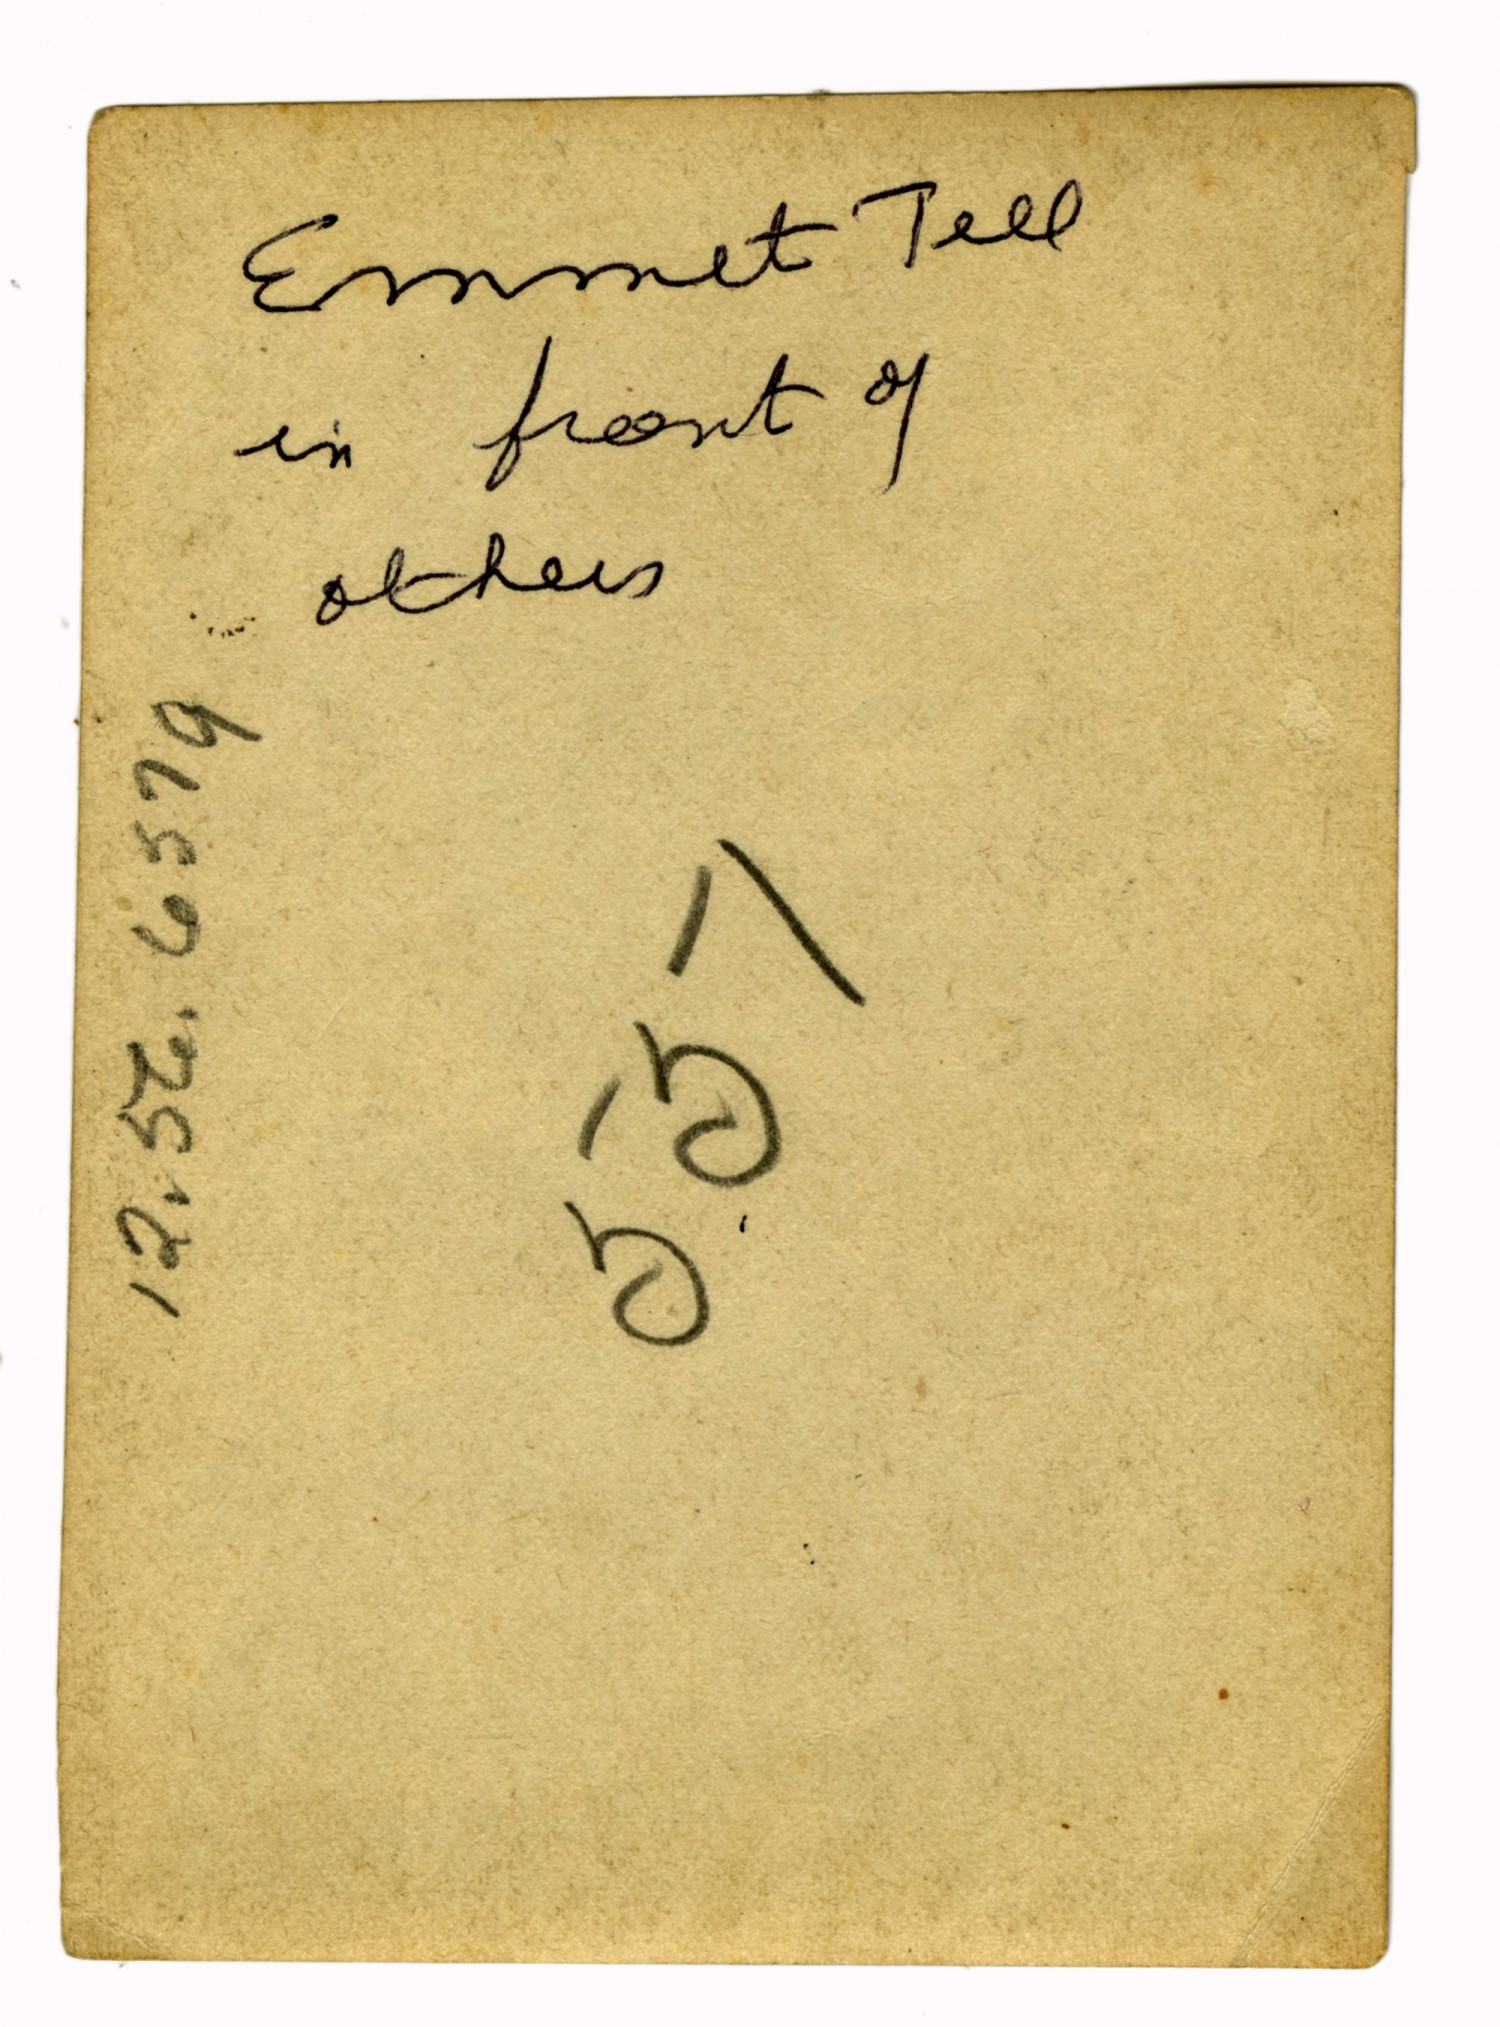 Emmet Tell
in front of
others
12.52.6579
557